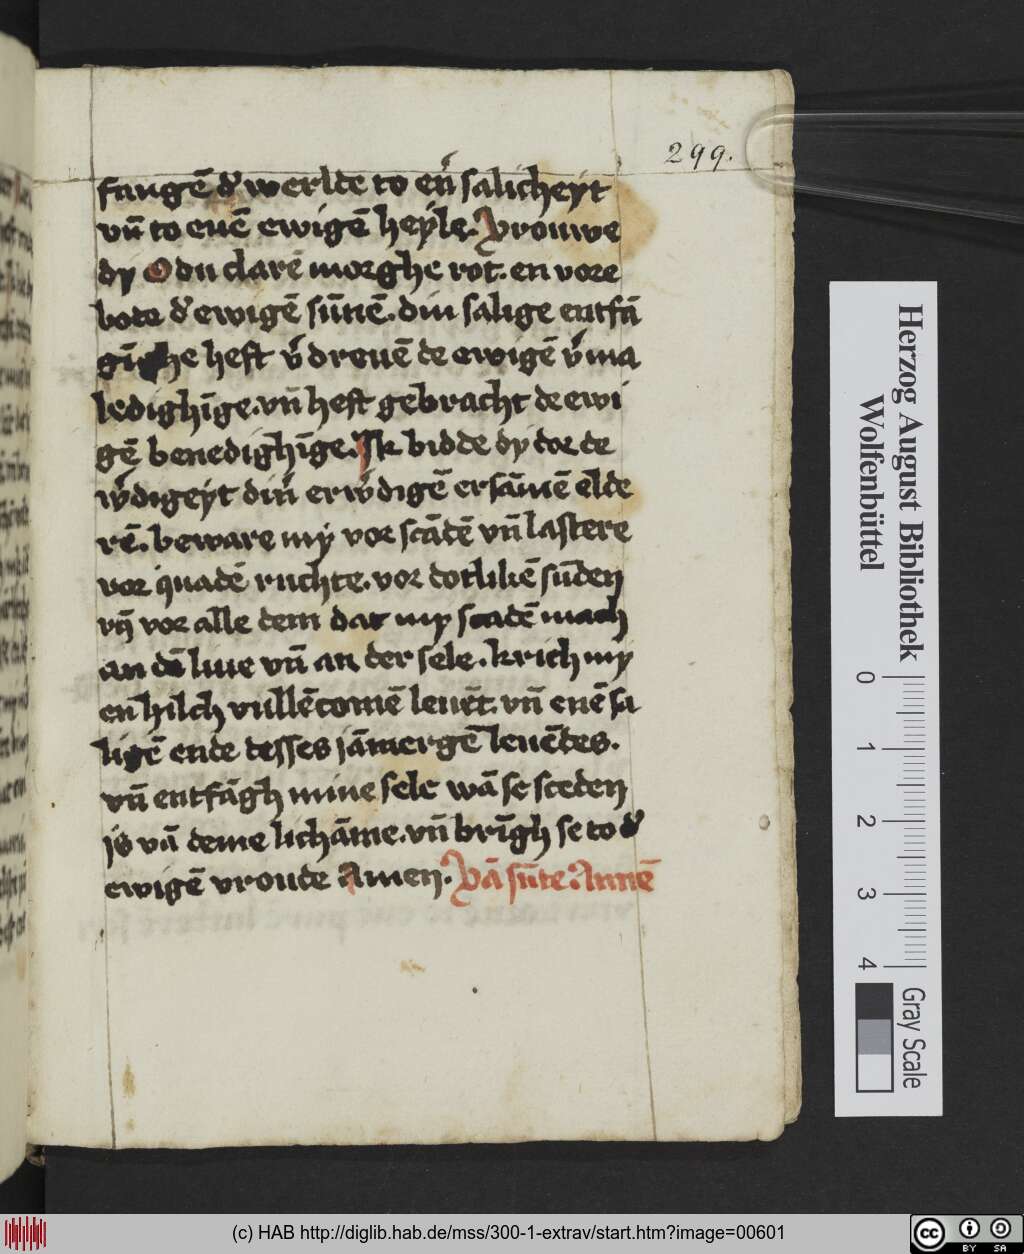 299.
fangē d' werlde to en̄ salicheyt
vn̄ to enē ewigē heyle. Vrouwe
dy O du clarē morghe rot. en vore
bote d' ewigē sūnē. din salige entfā
gīghe heft v'dreuē de ewigē v'ma
ledighīge. vn̄ heft gebracht de ewi
gē benedighīge. Ik bidde dy dor de
w'digeyt din' erw'digē ersāmē elde
rē. beware my vor scādē vn̄ lastere
vor quadē ruchte. vor dotlikē sūden
vn̄ vor alle dem dat my scadē mach
an dē liue vn̄ an der sele. krich my
en hilch vullēcomē leuēt. vn̄ enē sa
ligē ende desses jāmergē leuēdes.
vn̄ entfāgh mine sele wā se sceden
is vā deme lichāme. vn̄ brīgh se to d'
ewigē vroude Amen. Vā sūte Annē
Herzog August Bibliothek
Wolfenbüttel
0 1 2 3 4
Gray Scale
(c) HAB http://diglib.hab.de/mss/300-1-extrav/start.htm?image=00601
cc BY SA